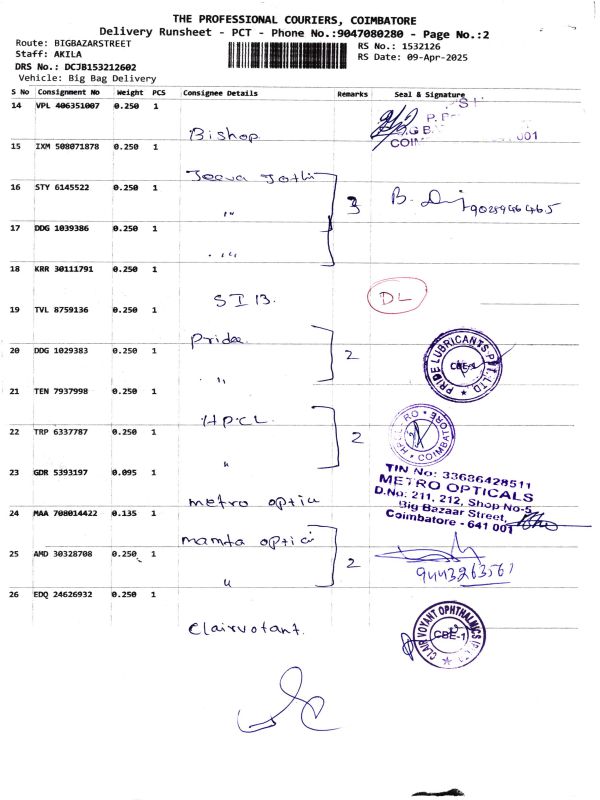 THE PROFESSIONAL COURIERS, COIMBATORE
Delivery Runsheet - PCT - Phone No.:9047080280 - Page No.:2
Route: BIGBAZARSTREET
RS No.: 1532126
Staff: AKILA
RS Date: 09-Apr-2025
DRS No.: DCJB153212602
Vehicle: Big Bag Delivery
S No Consignment No Weight PCS Consignee Details Remarks Seal & Signature
14 VPL 406351007 0.250 1
Bishop
001
15 IXM 508071878 0.250 1
Jeeva Jothi
16 STY 6145522 0.250 1
"
3
B.
17 DDG 1039386 0.250 1
"
18 KRR 30111791 0.250 1
SIB.
DL
19 TVL 8759136 0.250 1
Pride
PRIDE LUBRICANTS PVT. LTD
CBE-1
20 DDG 1029383 0.250 1
"
2
21 TEN 7937998 0.250 1
HPCL
COIMBATORE
22 TRP 6337787 0.250 1
"
2
23 GDR 5393197 0.095 1
metro optic
TIN No: 33686428511
METRO OPTICALS
D.No: 211, 212, Shop No-5,
Big Bazaar Street,
Coimbatore - 641 001
24 MAA 708014422 0.135 1
mamta optic
25 AMD 30328708 0.250 1
"
2
9443263567
26 EDQ 24626932 0.250 1
Clairvotant.
CLAIR VOYANT OPHTHALMICS (P) LTD
CBE-1